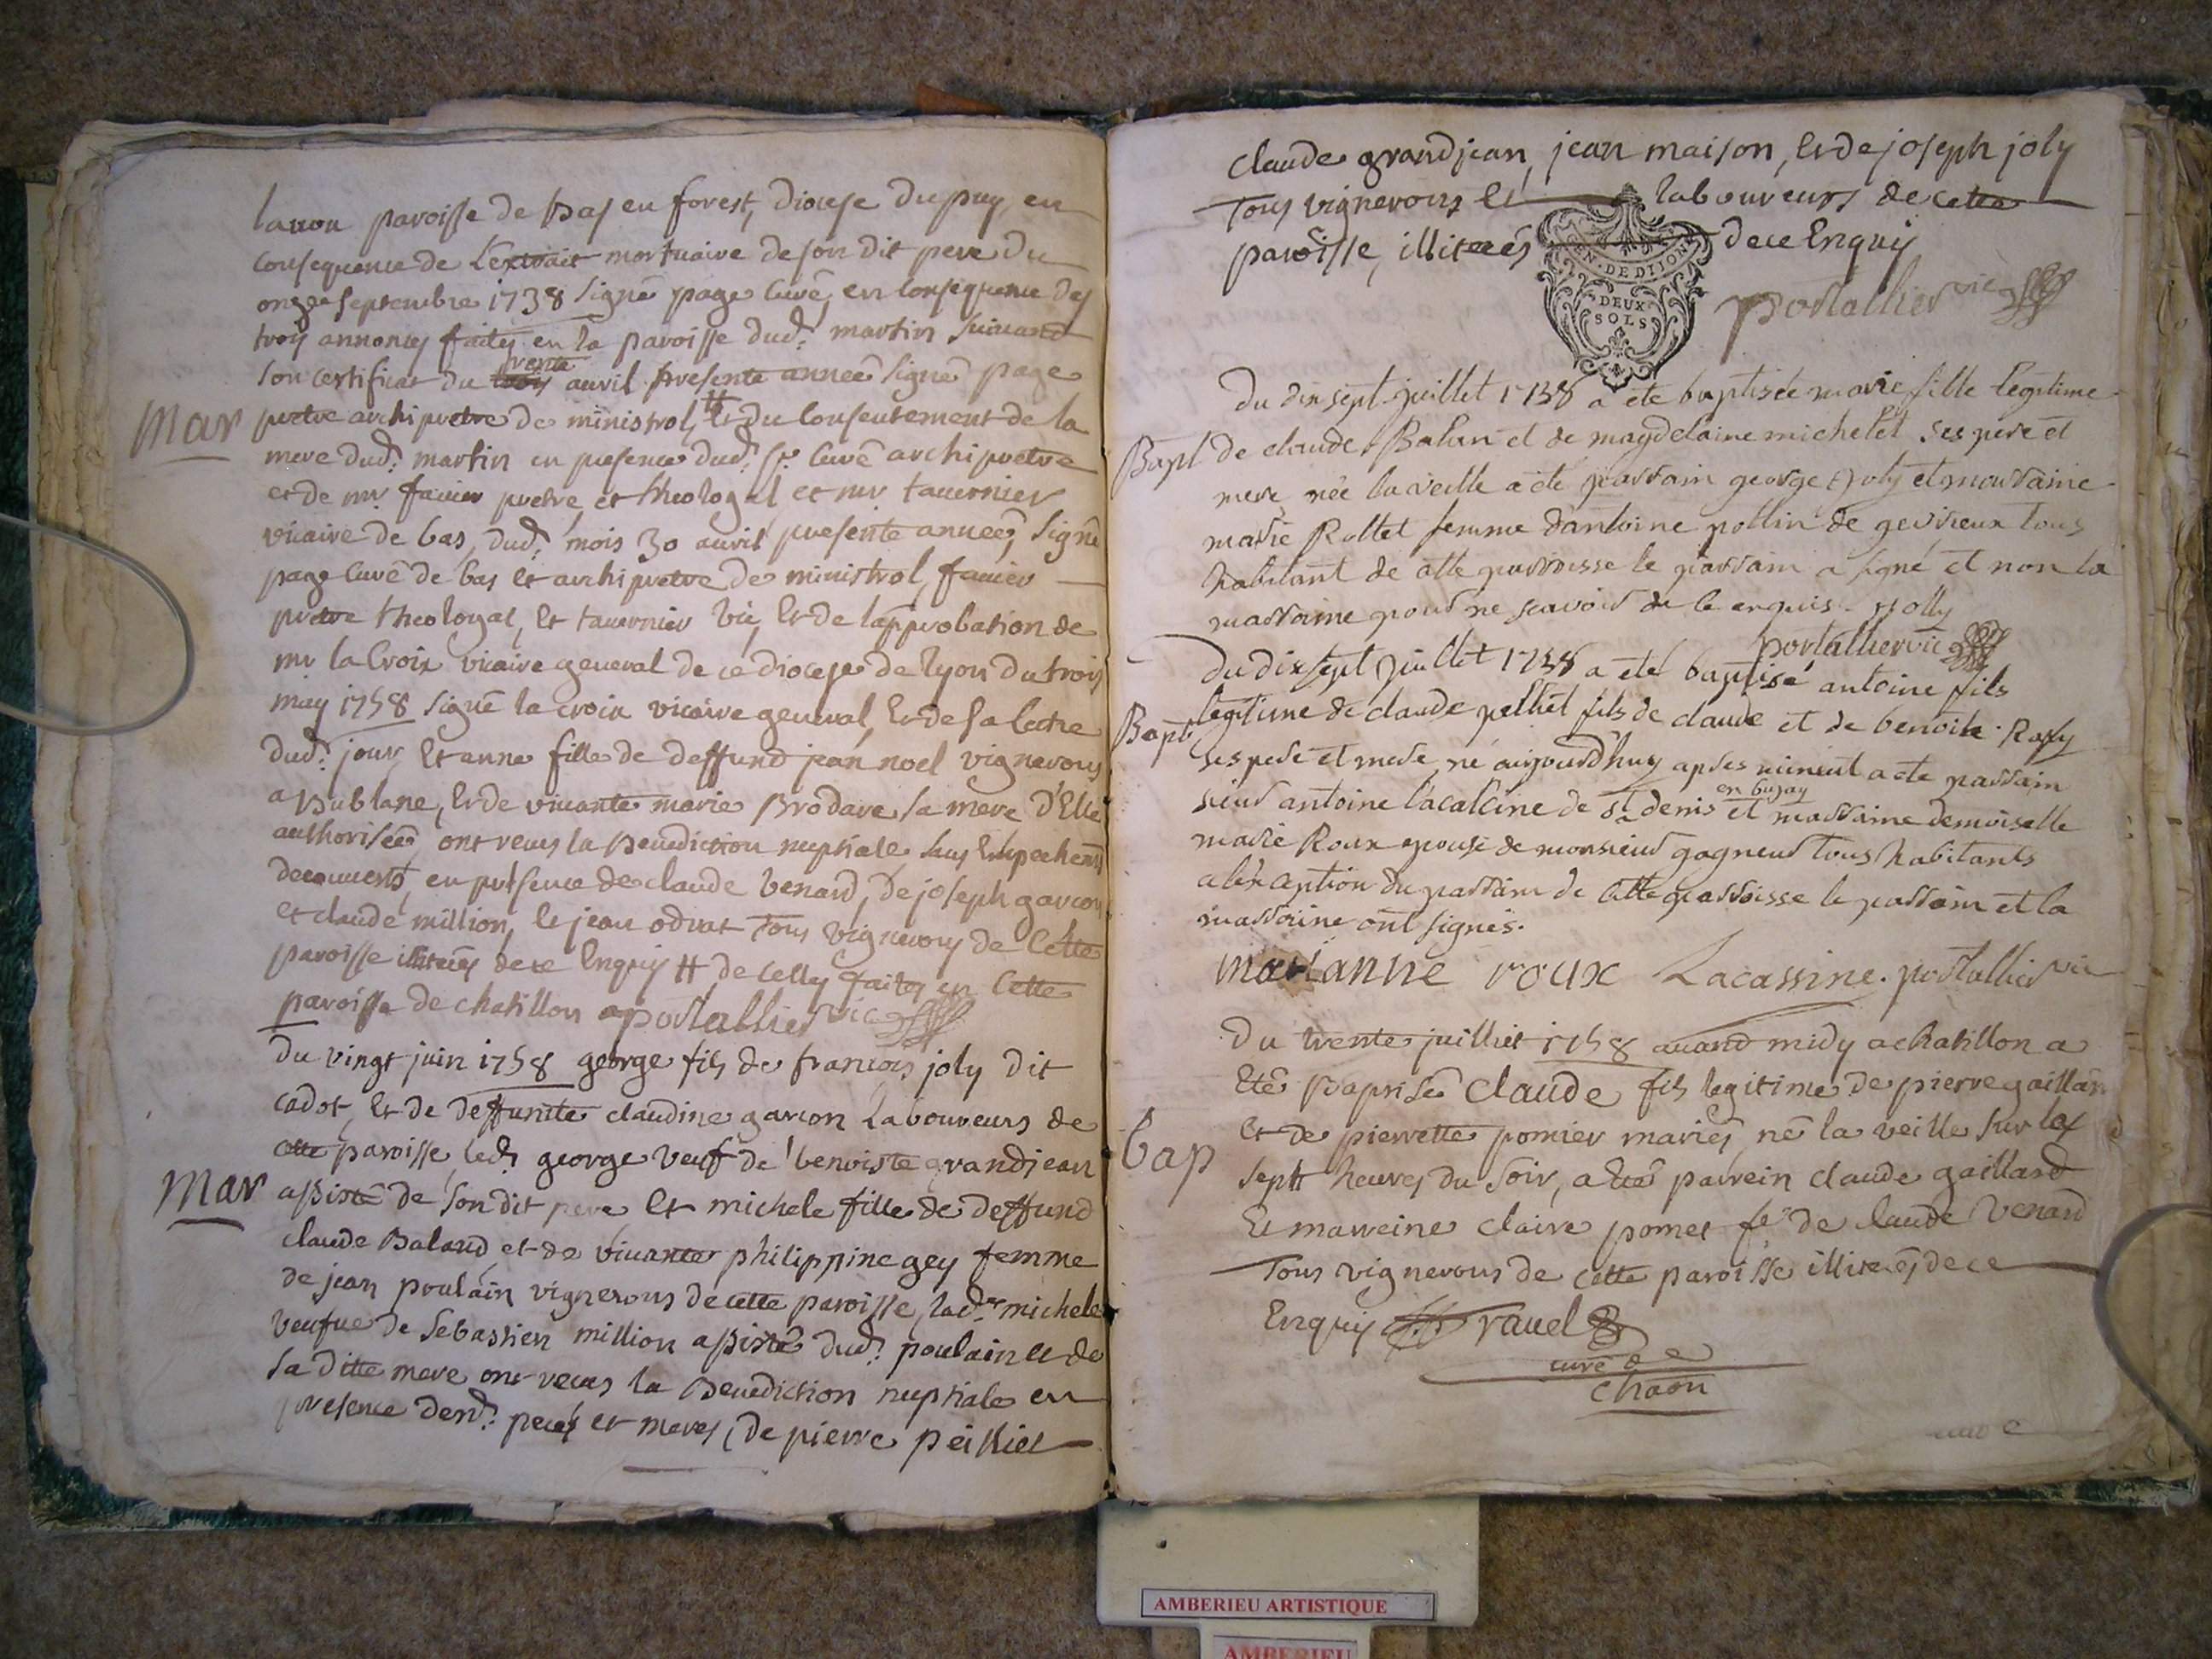 lauon paroisse de Bas en forest, Diocese Dupuy, en
consequence de L'extrait mortuaire de son dit pere Du
onze septembre 1738 signé page curé, en consequence des
trois annonces faites en la paroisse dud: martin suivand
son certificat du trente auvril presente année signé page
pretre archipretre de ministrol, # et du consentement de la
Mar
mere dud: martin en presence dud: sr. curé archipretre
et de mr fauier pretre et theologal et mr tauernier
vicaire de bas, dud: mois 30 auvril presente année, signé
page curé de bas et archipretre de ministrol, fauier
pretre theologal, et tauernier vic, et de l'approbation de
mr la Croix vicaire general de ce diocese de lyon du trois
may 1758 signé la croix vicaire general, et de sa lettre
dud: jour, et anne fille de deffund jean noel vignerons
a Bublane, et de viuante marie Brodare sa mere d'Elle
authorisée, ont recus la Benediction nuptiale sans Empechemt
decouuerts, en presence de claude benard, de joseph garcon
et claude million, et jean odrat Tous vignerons de Cette
paroisse illiterés de ce Enquis # de celles faites en Cette
paroisse de chatillon portallier vic
Du vingt juin 1758 george fils de francois joly dit
cadot, et de deffunte claudine garcon Laboureurs de
cette paroisse, led: george veuf de benoiste grandjean
Mar
assisté de son dit pere et michele fille de deffund
claude Baland, et de viuante philippine gey femme
de jean poulain vignerons de cette paroisse, lad: michele
veufue de sebastien million assisté dud: poulain et de
sa ditte mere ont recus la Benediction nuptiale en
presence desd: peres et meres, de pierre peilliet
claude grandjean, jean maison, et de joseph joly
Tous vignerons et laboureurs de cette
paroisse, illiterés de ce Enquis
GEN. DE DIJON
DEUX
SOLS
portallier vic
Du dix sept juillet 1758 a eté baptisée marie fille legitime
Bapt
de claude Balan et de magdelaine michelet ses pere et
mere née la veille a eté parrain george Joly et marraine
marie Rollet femme d'antoine pollin de gevrieux tous
habitant de cette parroisse le parrain a signé et non la
marraine pour ne scavoir de ce enquis. Jolly
portallier vic
Du dix sept juillet 1758 a eté baptisé antoine fils
Bapt
legitime de claude pelliet fils de claude et de benoite Rapy
ses pere et mere né aujourd'huy apres minuit a eté parrain
sieur antoine lacassine de st denis en bugay et marraine demoiselle
marie Roux epouse de monsieur gagneur tous habitants
a l'exception du parrain de cette parroisse le parrain et la
marraine ont signés.
marianne roux Lacassine. portallier vic
Du trente juilliet 1758 auand midy a chatillon a
Eté Baptisé Claude fils legitime de pierre gaillard
bap
et de pierrette pomier mariés, né la veille sur les
sept heures du soir, a été parrein claude gaillard
Et marreine claire pomet fe de claude Venard
Tous vignerons de cette paroisse illiterés de ce
Enquis rauel
curé de
chaon
AMBERIEU ARTISTIQUE
AMBERIEU